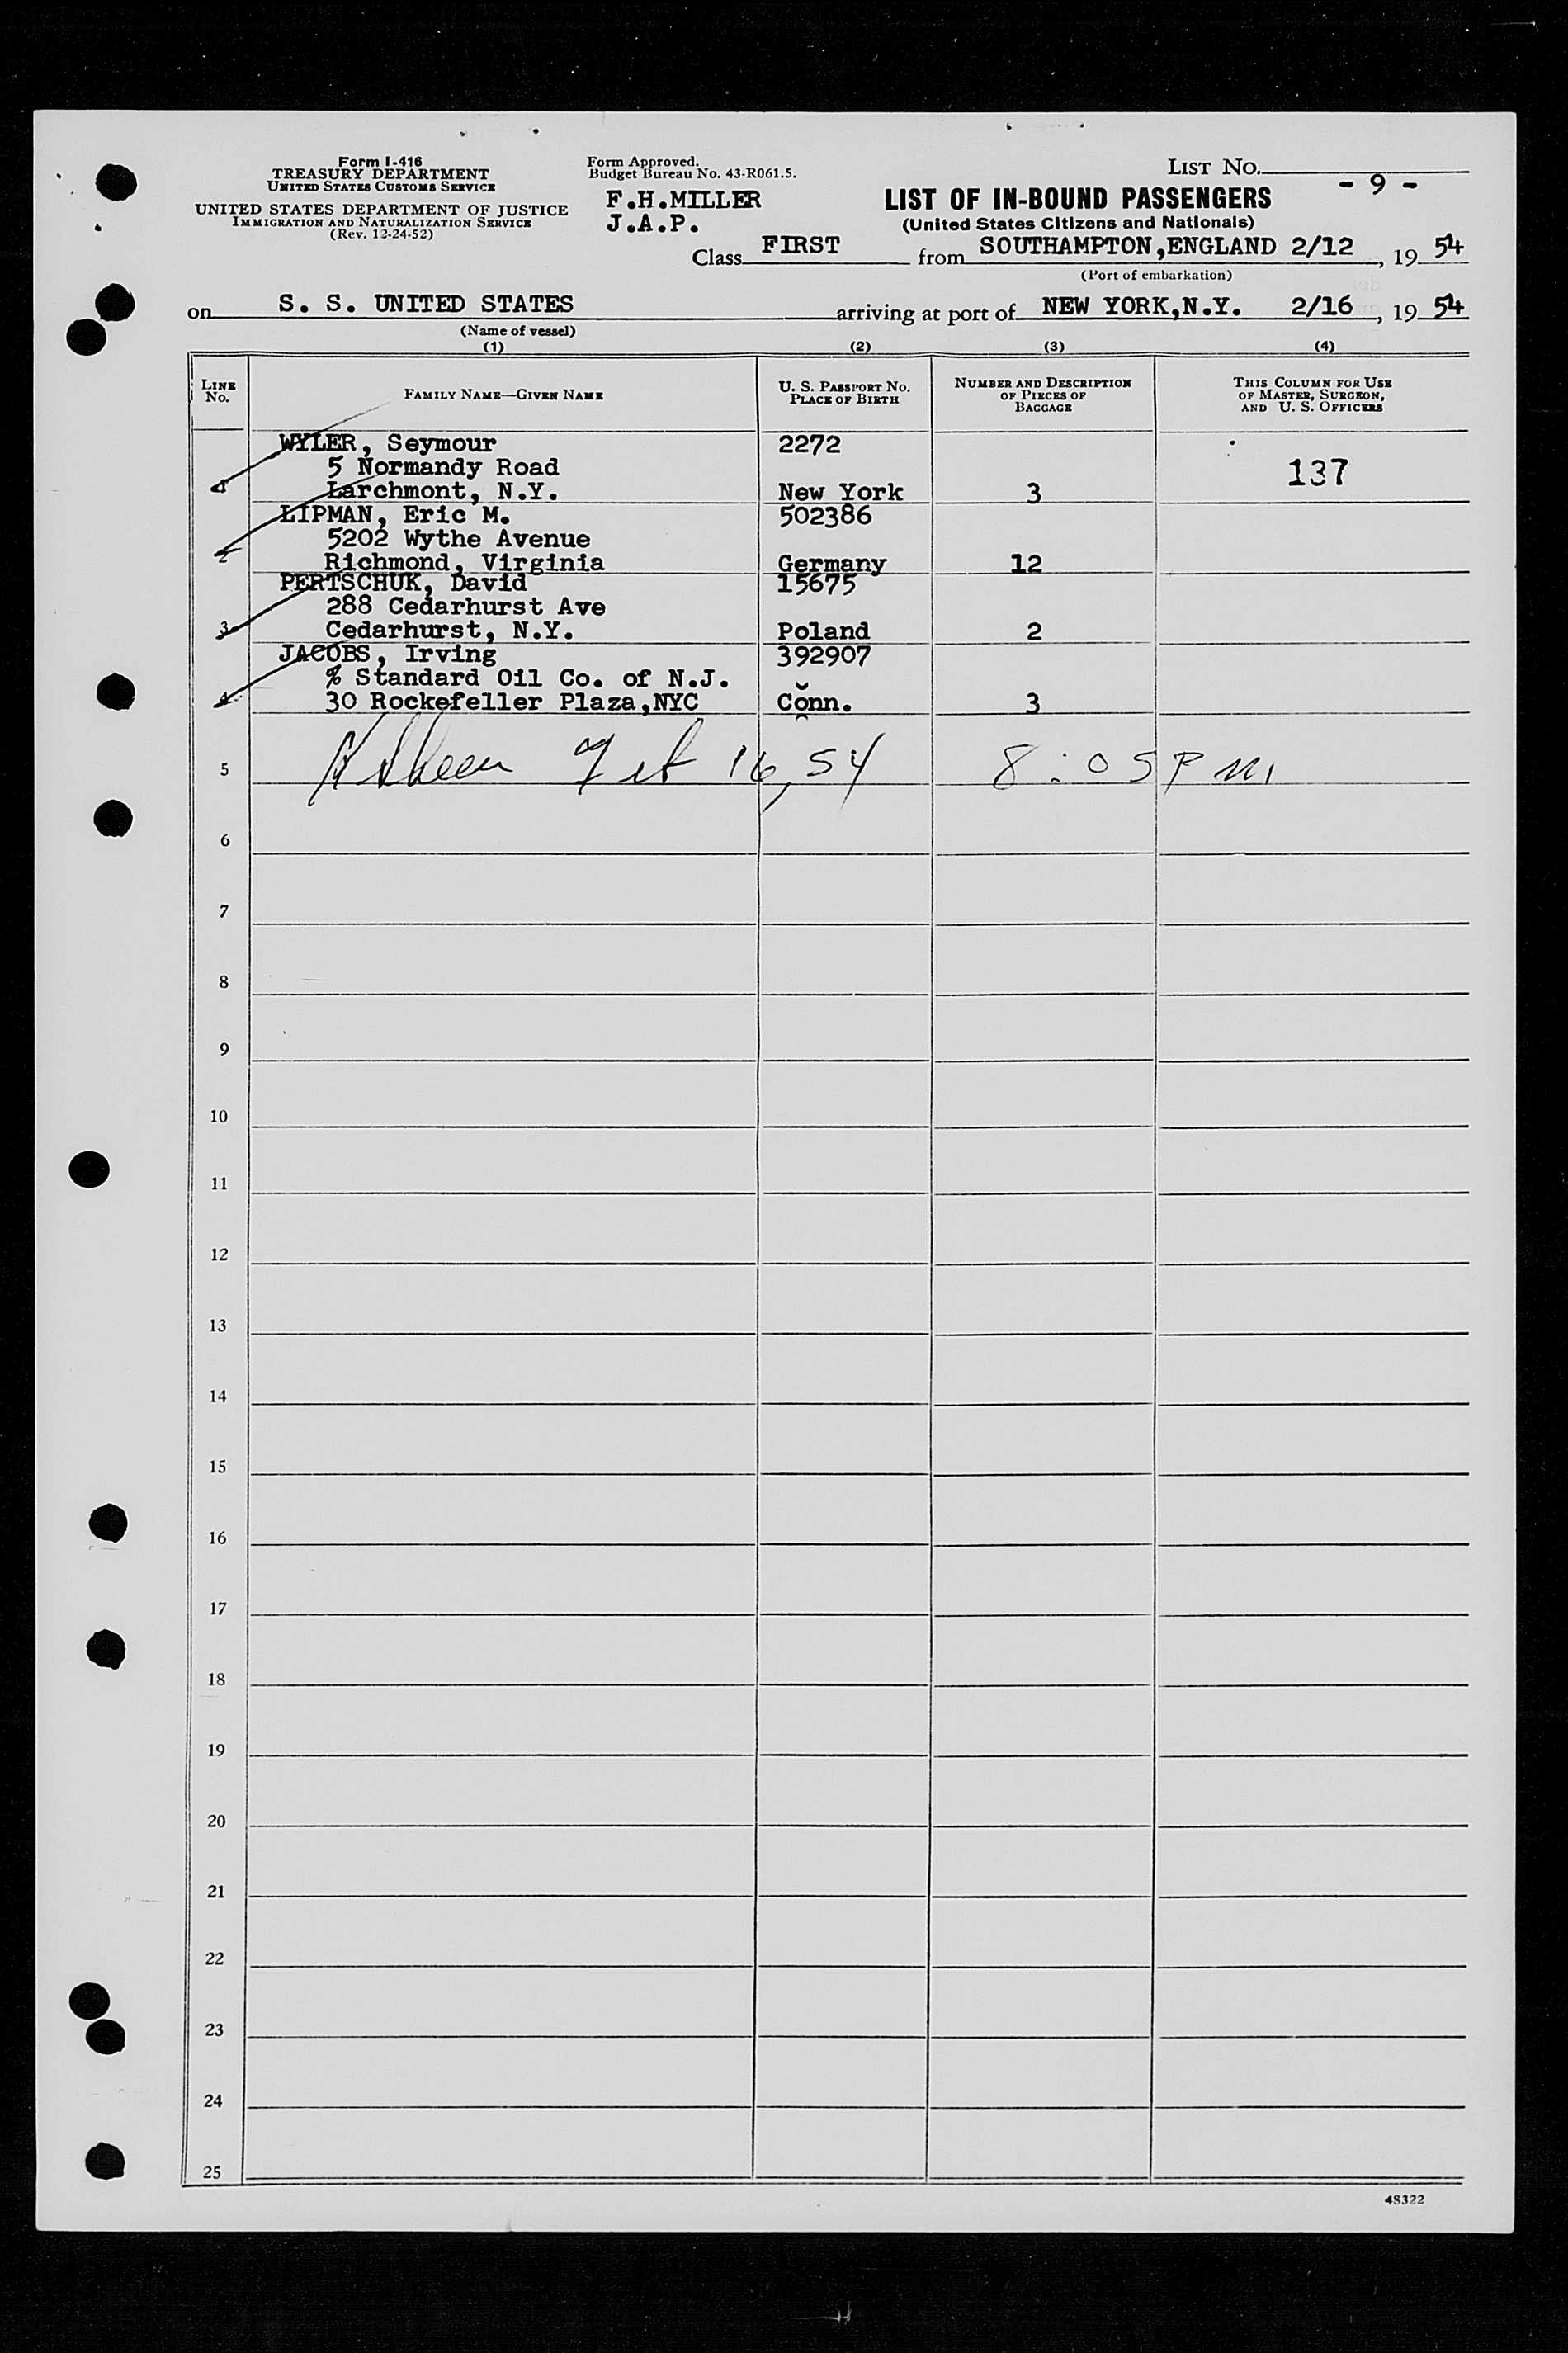 Form I-416
TREASURY DEPARTMENT
UNITED STATES CUSTOMS SERVICE
UNITED STATES DEPARTMENT OF JUSTICE
IMMIGRATION AND NATURALIZATION SERVICE
(Rev. 12-24-52)
Form Approved.
Budget Bureau No. 43-R061.5.
F.H.MILLER
J.A.P.
LIST NO.
- 9 -
LIST OF IN-BOUND PASSENGERS
(United States Citizens and Nationals)
Class FIRST from SOUTHAMPTON,ENGLAND 2/12, 19 54
(Port of embarkation)
on S. S. UNITED STATES arriving at port of NEW YORK,N.Y. 2/16, 19 54
(Name of vessel)
(1) (2) (3) (4)
LINE NO.
FAMILY NAME—GIVEN NAME
U. S. PASSPORT NO.
PLACE OF BIRTH
NUMBER AND DESCRIPTION
OF PIECES OF
BAGGAGE
THIS COLUMN FOR USE
OF MASTER, SURGEON,
AND U. S. OFFICERS
WYLER, Seymour 2272
5 Normandy Road 137
1 Larchmont, N.Y. New York 3
LIPMAN, Eric M. 502386
5202 Wythe Avenue
2 Richmond, Virginia Germany 12
PERTSCHUK, David 15675
288 Cedarhurst Ave
3 Cedarhurst, N.Y. Poland 2
JACOBS, Irving 392907
% Standard Oil Co. of N.J.
4 30 Rockefeller Plaza,NYC Conn. 3
5 Feb 16, 54 8:05 PM
6
7
8
9
10
11
12
13
14
15
16
17
18
19
20
21
22
23
24
25
48322